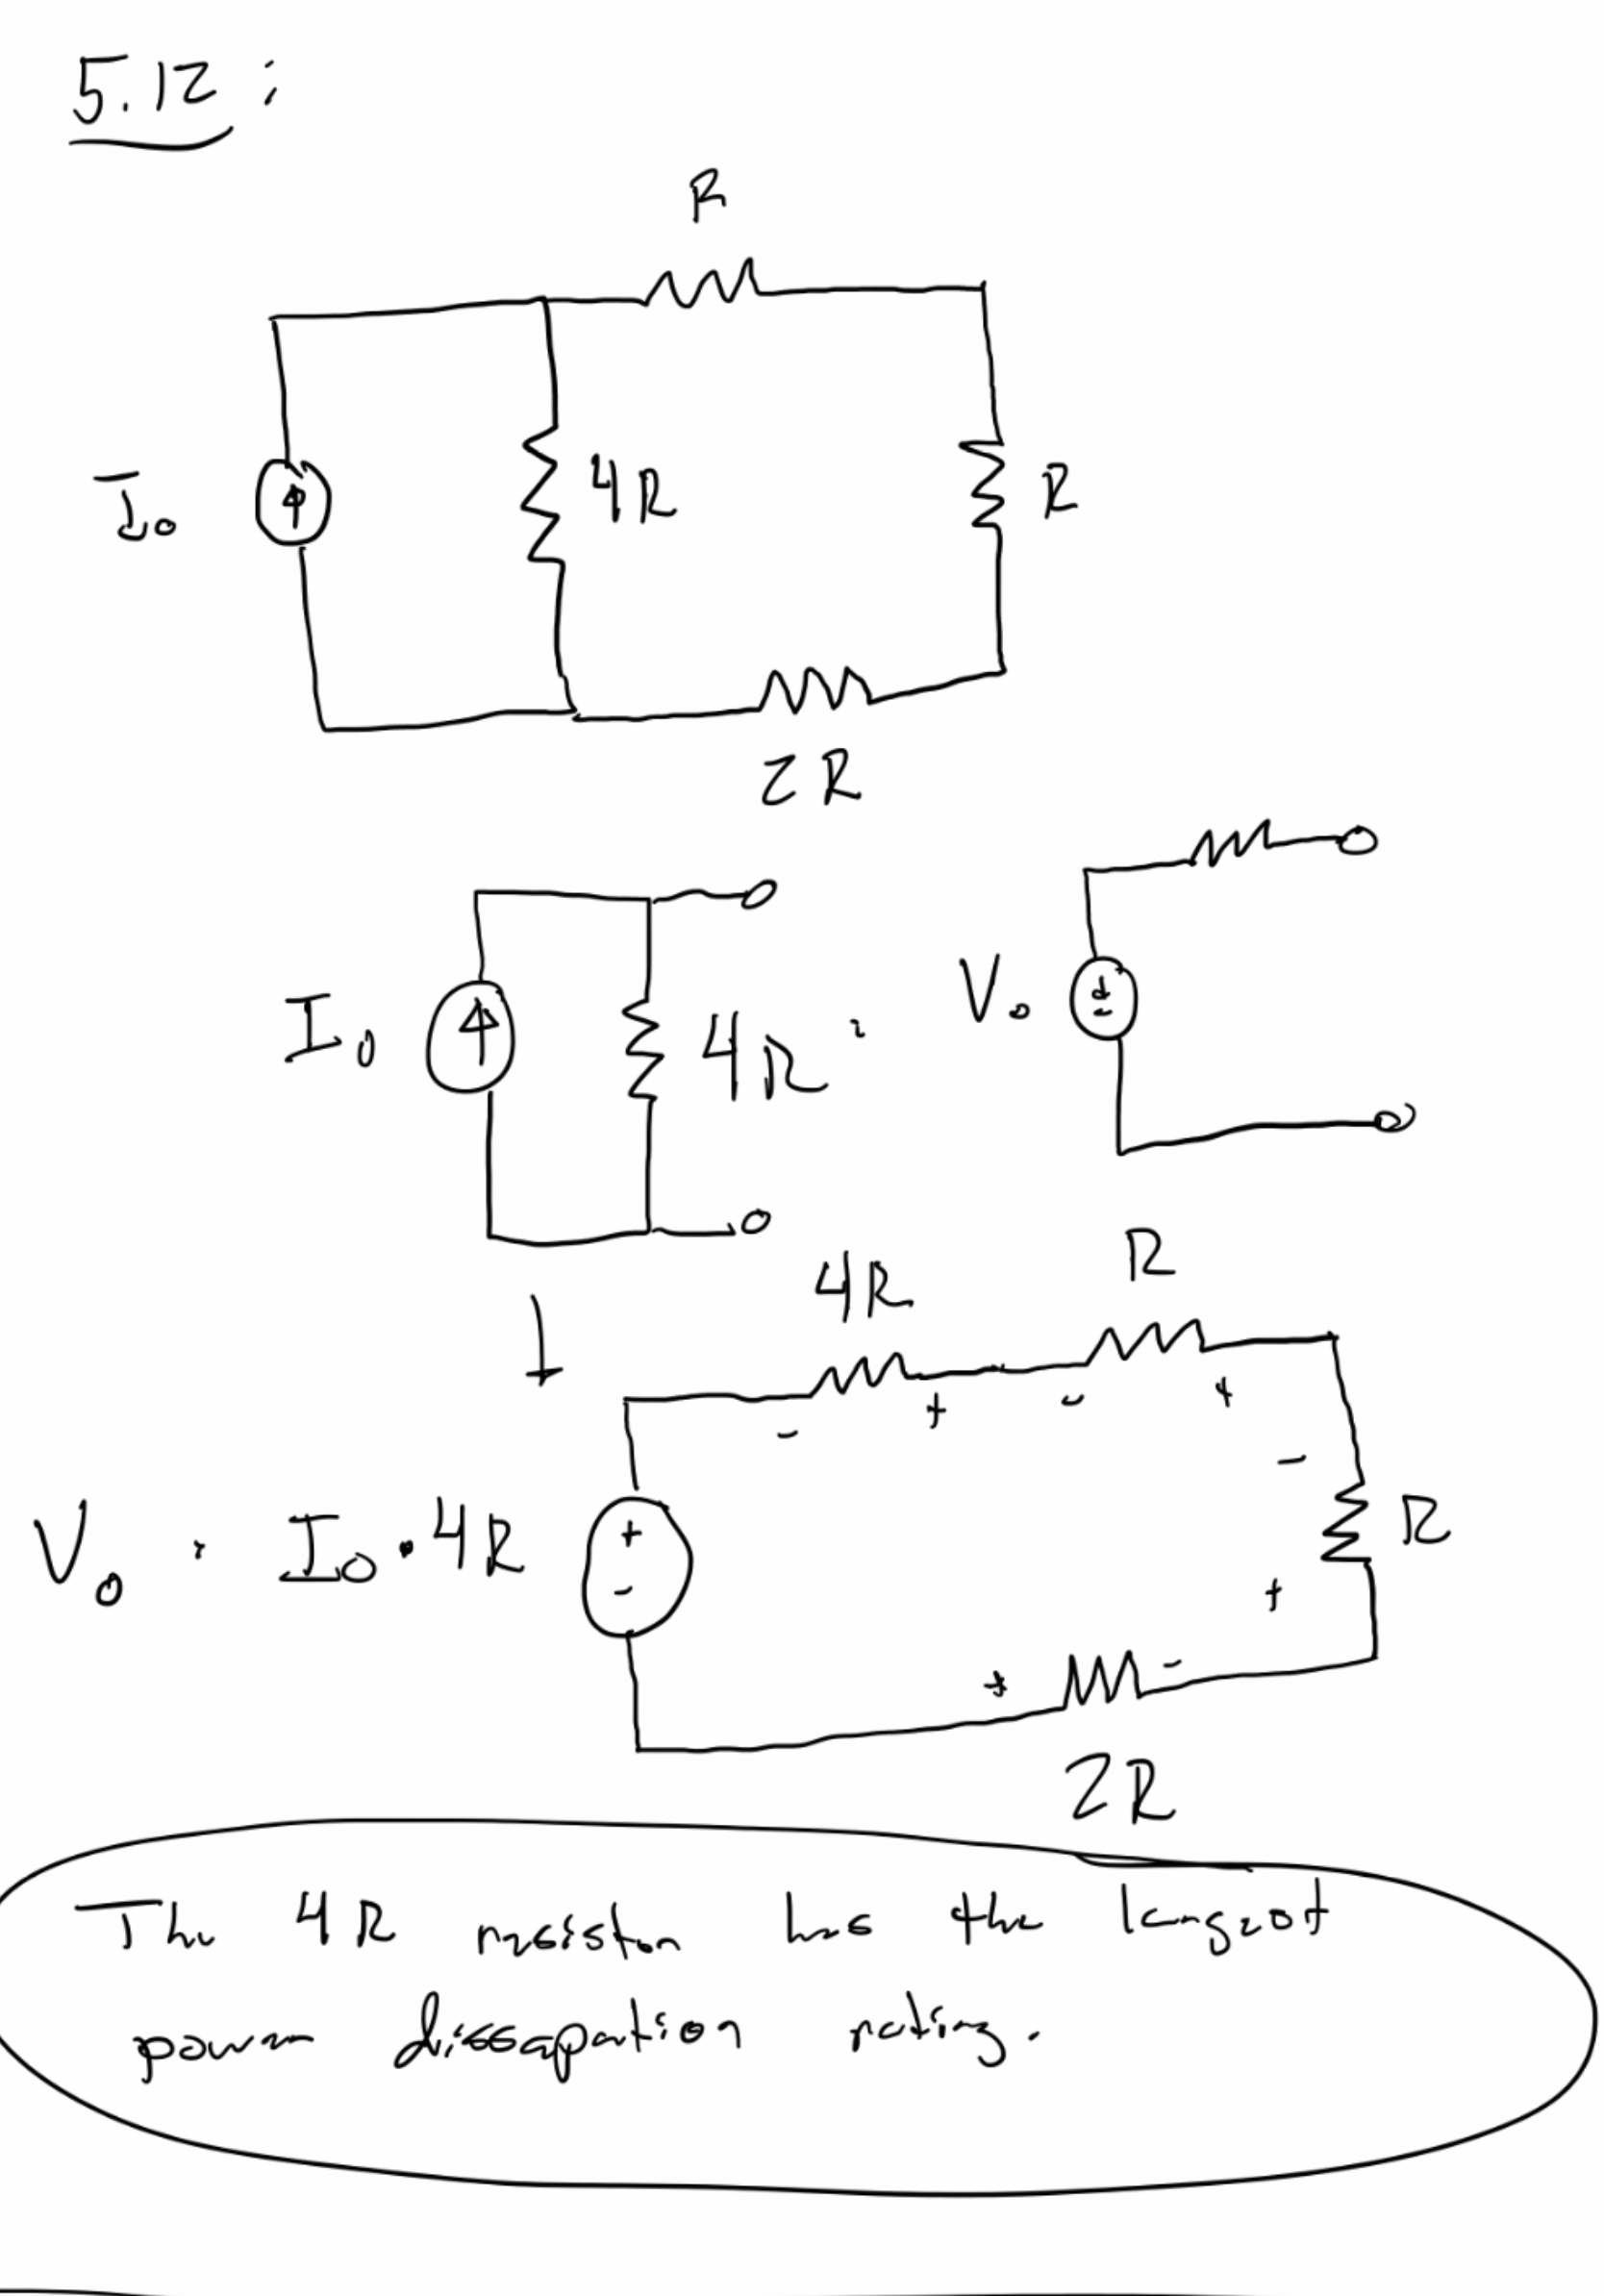 5.12 :
R
I₀ 4R R
2R
I₀ 4R = V₀
4R R
V₀ = I₀ · 4R R
2R
The 4R resistor has the largest
power dissapation rating.